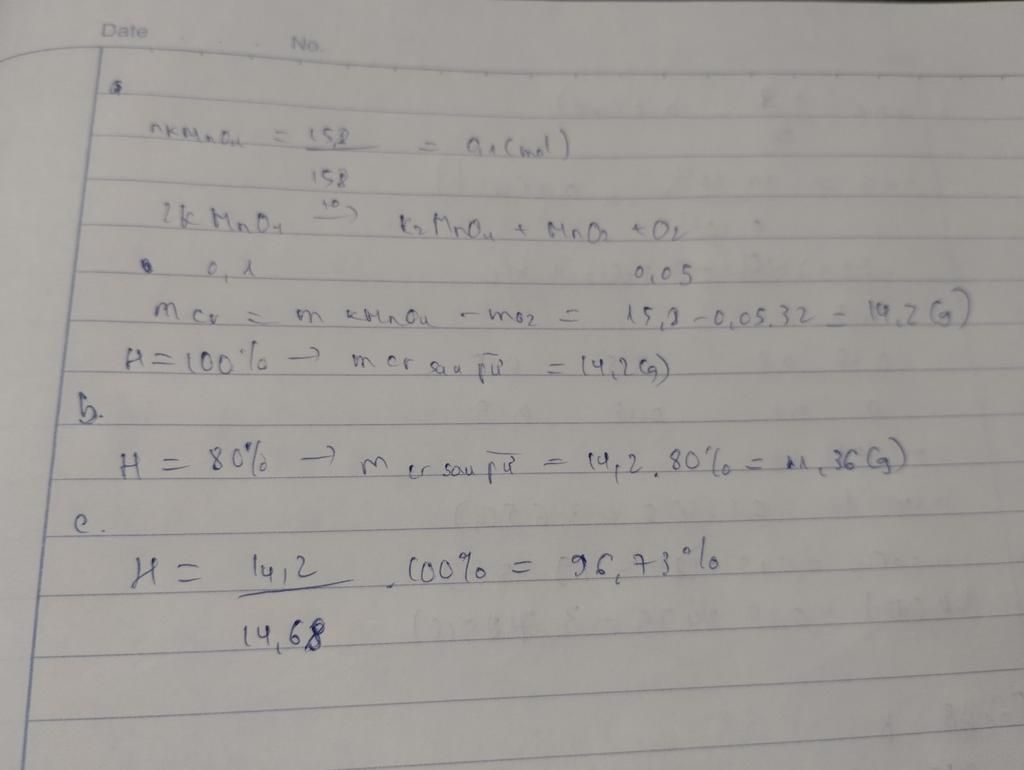 Date No.
a
nKMnO4 = 15,8 / 158 = 0,1 (mol)
2KMnO4 t° → K2MnO4 + MnO2 + O2
0,1 0,05
m cr = m KMnO4 - mO2 = 15,8 - 0,05.32 = 14,2 (g)
H = 100% → m cr sau pư = 14,2 (g)
b.
H = 80% → m cr sau pư = 14,2 . 80% = 11,36 (g)
c.
H = 14,2 / 14,68 . 100% = 96,73%